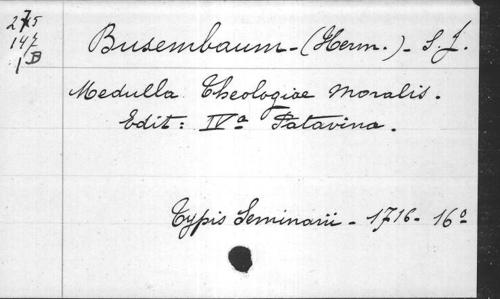 275
147
1 B
Busembaum - (Herm.) - S. J.
Medulla Theologiae Moralis.
Edit: IVa Patavina.
Typis Seminarii - 1716 - 16º